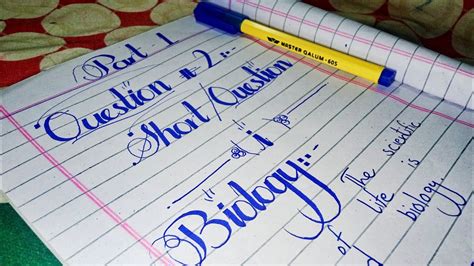 Part - 1
"Question # 2:-
Short / Question
"i"
"Biology:-
The scientific
of life is
biology.
MASTER QALUM-605